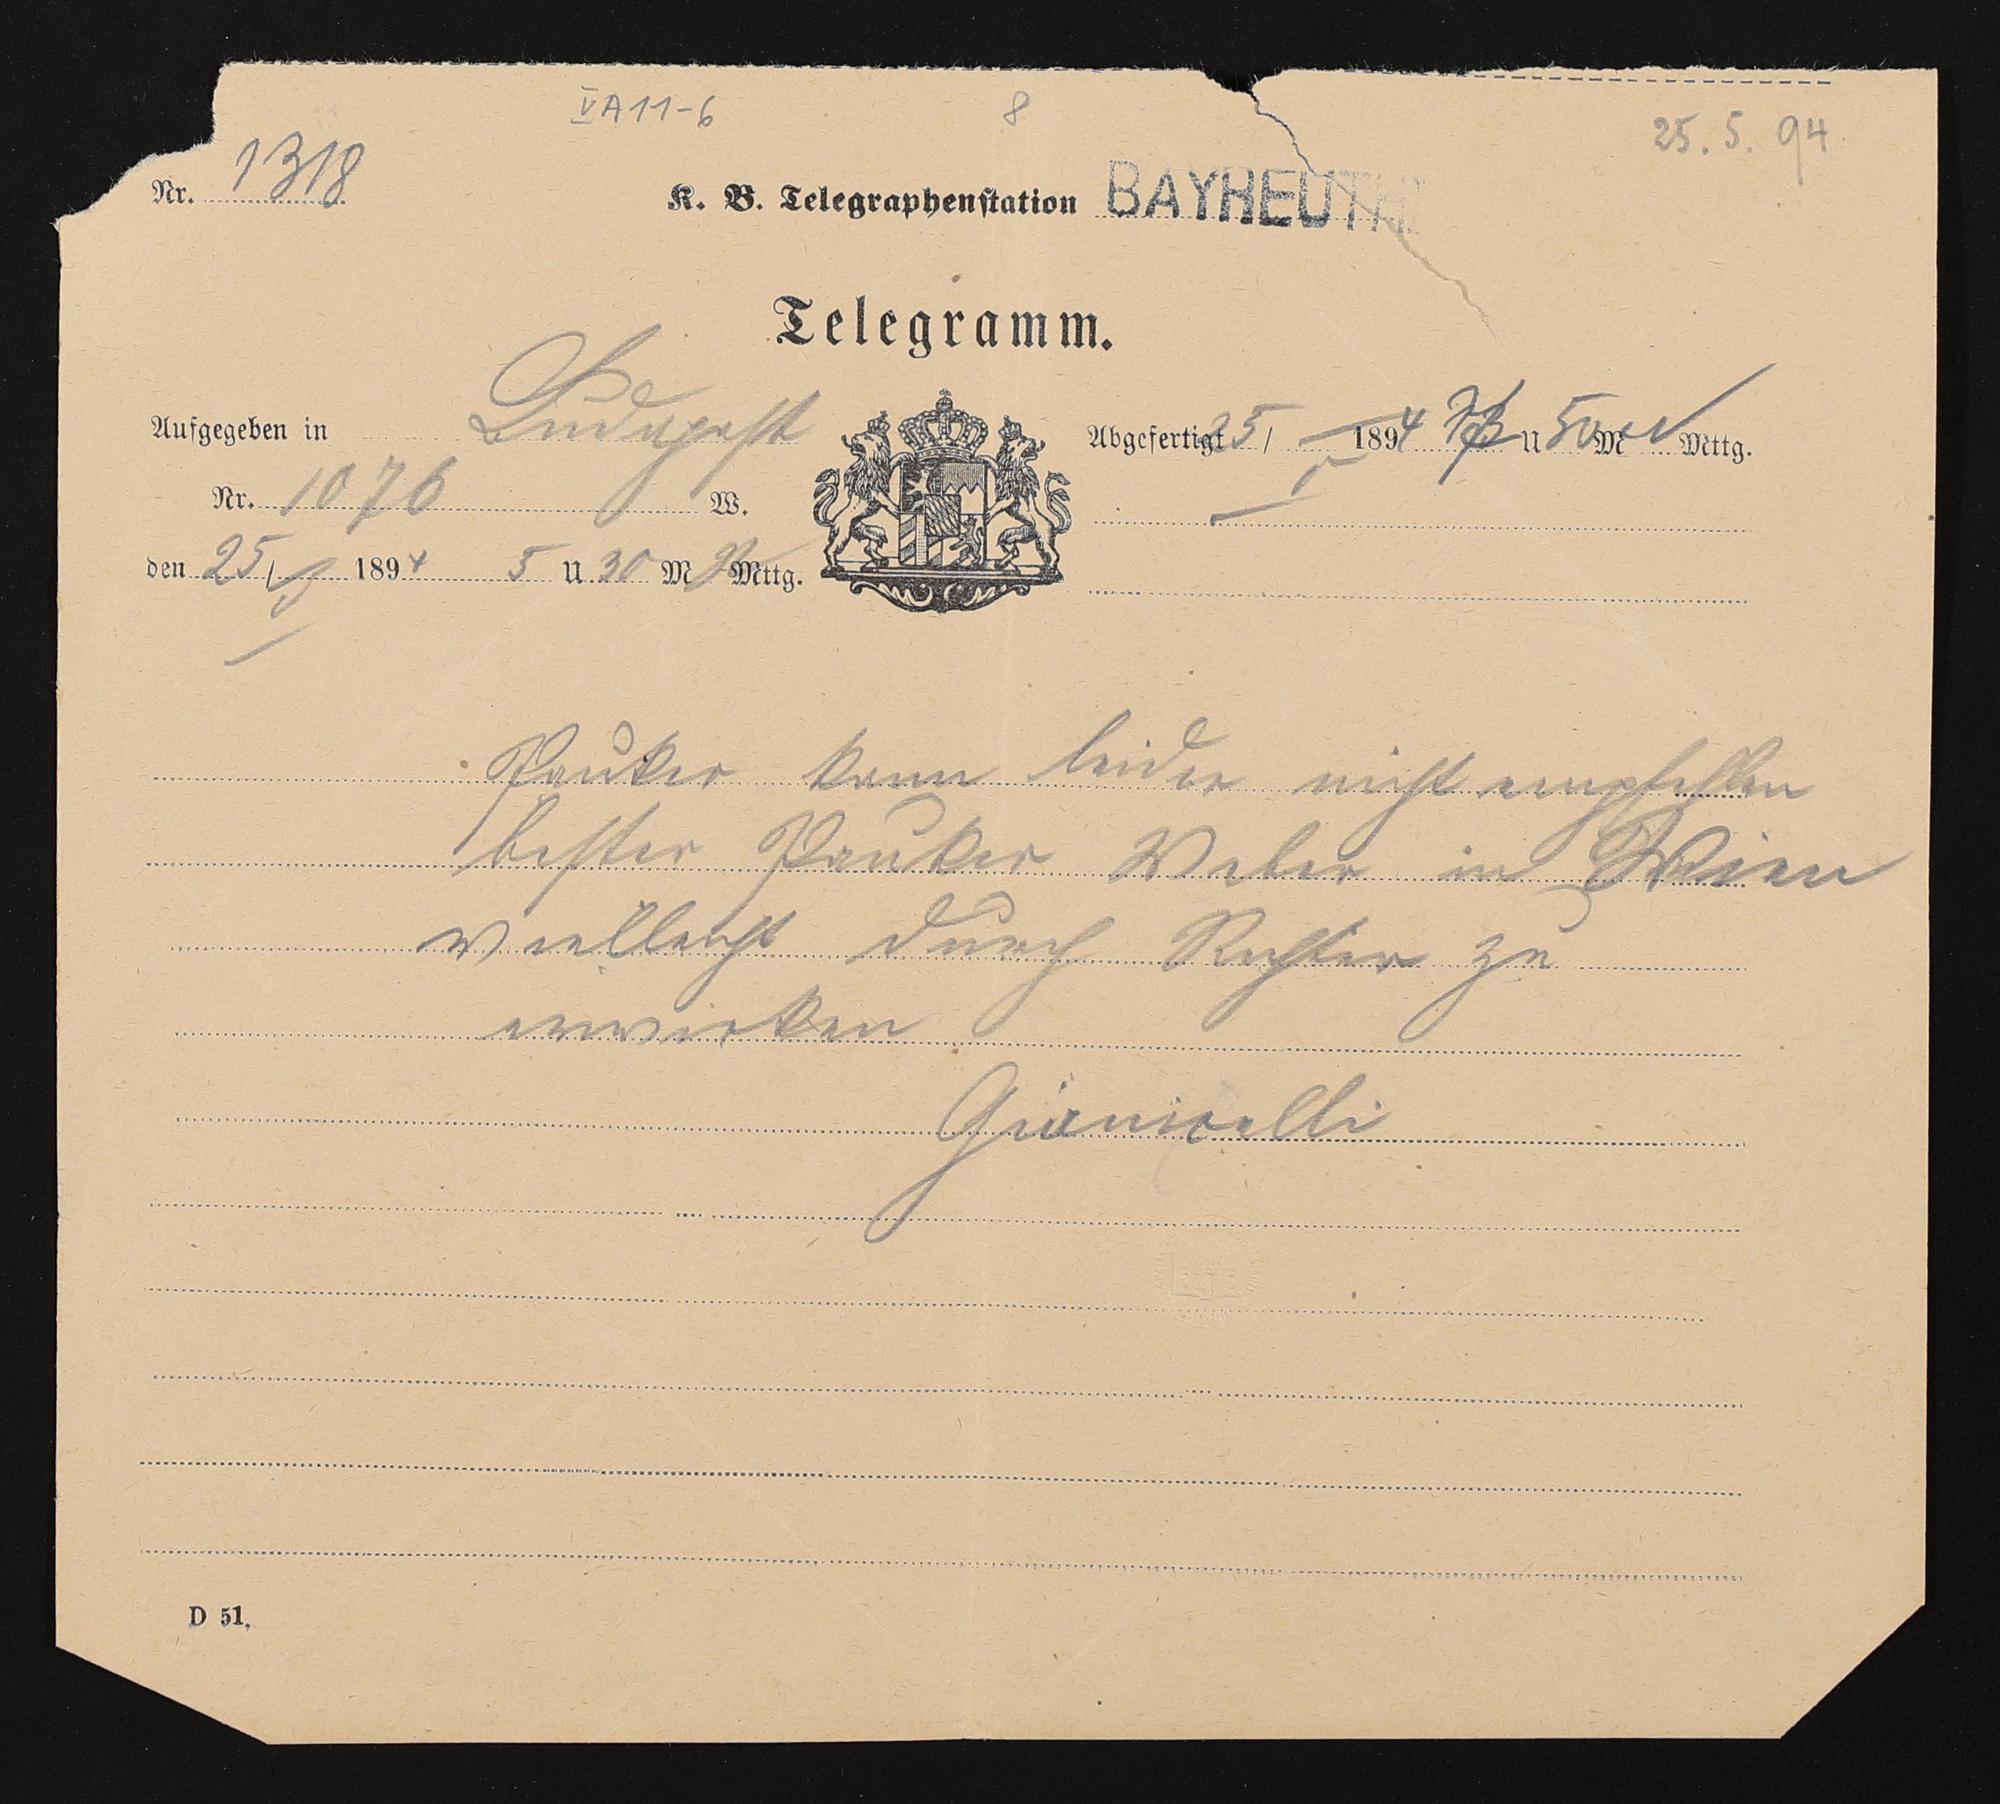 V A 11-6 8 25. 5. 94
Nr. 1318 K. B. Telegraphenstation BAYREUTH
Telegramm.
Aufgegeben in Budapest
Abgefertigt 25/5 1894 U 50 M Mttg.
Nr. 1076 W.
den 25/5 1894 5 U 30 M N Mttg.
Pauker kann leider nicht empfehlen
bester Pauker Weber in Wien
vielleicht durch Richter zu
erwirken
Gianicelli
D 51.